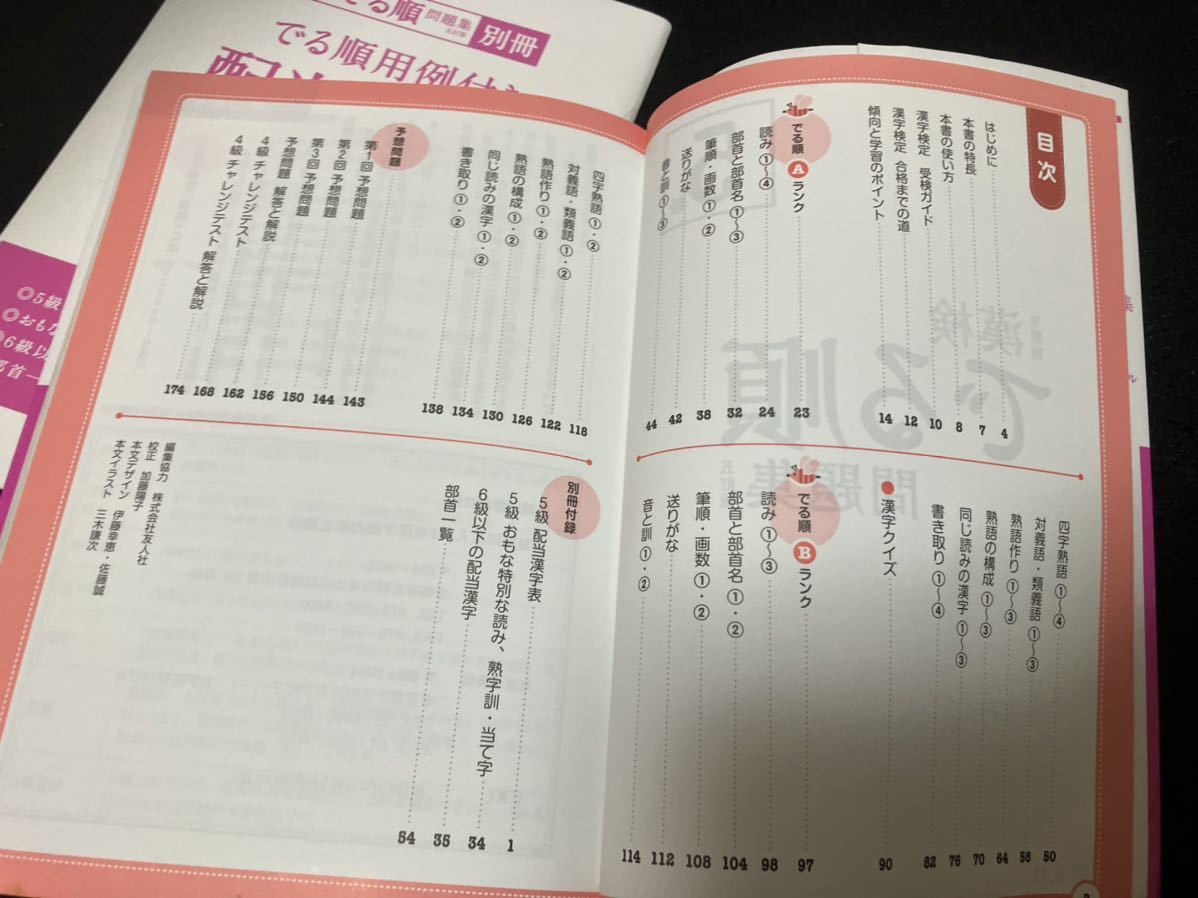 目次
はじめに 4
本書の特長 7
本書の使い方 8
漢字検定 受検ガイド 10
漢字検定 合格までの道 12
傾向と学習のポイント 14
でる順 A ランク 23
読み ①〜④ 24
部首と部首名 ①〜③ 32
筆順・画数 ①・② 38
送りがな 42
音と訓 ①〜③ 44
四字熟語 ①〜④ 50
対義語・類義語 ①〜③ 58
熟語作り ①〜③ 64
熟語の構成 ①〜③ 70
同じ読みの漢字 ①〜③ 76
書き取り ①〜④ 82
漢字クイズ 90
でる順 B ランク 97
読み ①〜③ 98
部首と部首名 ①・② 104
筆順・画数 ①・② 108
送りがな 112
音と訓 ①・② 114
四字熟語 ①・② 118
対義語・類義語 ①・② 122
熟語作り ①・② 126
熟語の構成 ①・② 130
同じ読みの漢字 ①・② 134
書き取り ①・② 138
予想問題
第1回 予想問題 143
第2回 予想問題 144
第3回 予想問題 150
予想問題 解答と解説 156
4級 チャレンジテスト 162
4級 チャレンジテスト 解答と解説 168
174
別冊付録
5級 配当漢字表 1
5級 おもな特別な読み、熟字訓・当て字 34
6級以下の配当漢字 35
部首一覧 54
編集協力 株式会社友人社
校正 加藤陽子
本文デザイン 伊藤幸恵・佐藤誠
本文イラスト 三木謙次
でる順 問題集 別冊
でる順用例付き
◎5級
◎おもな
◎6級以
部首一